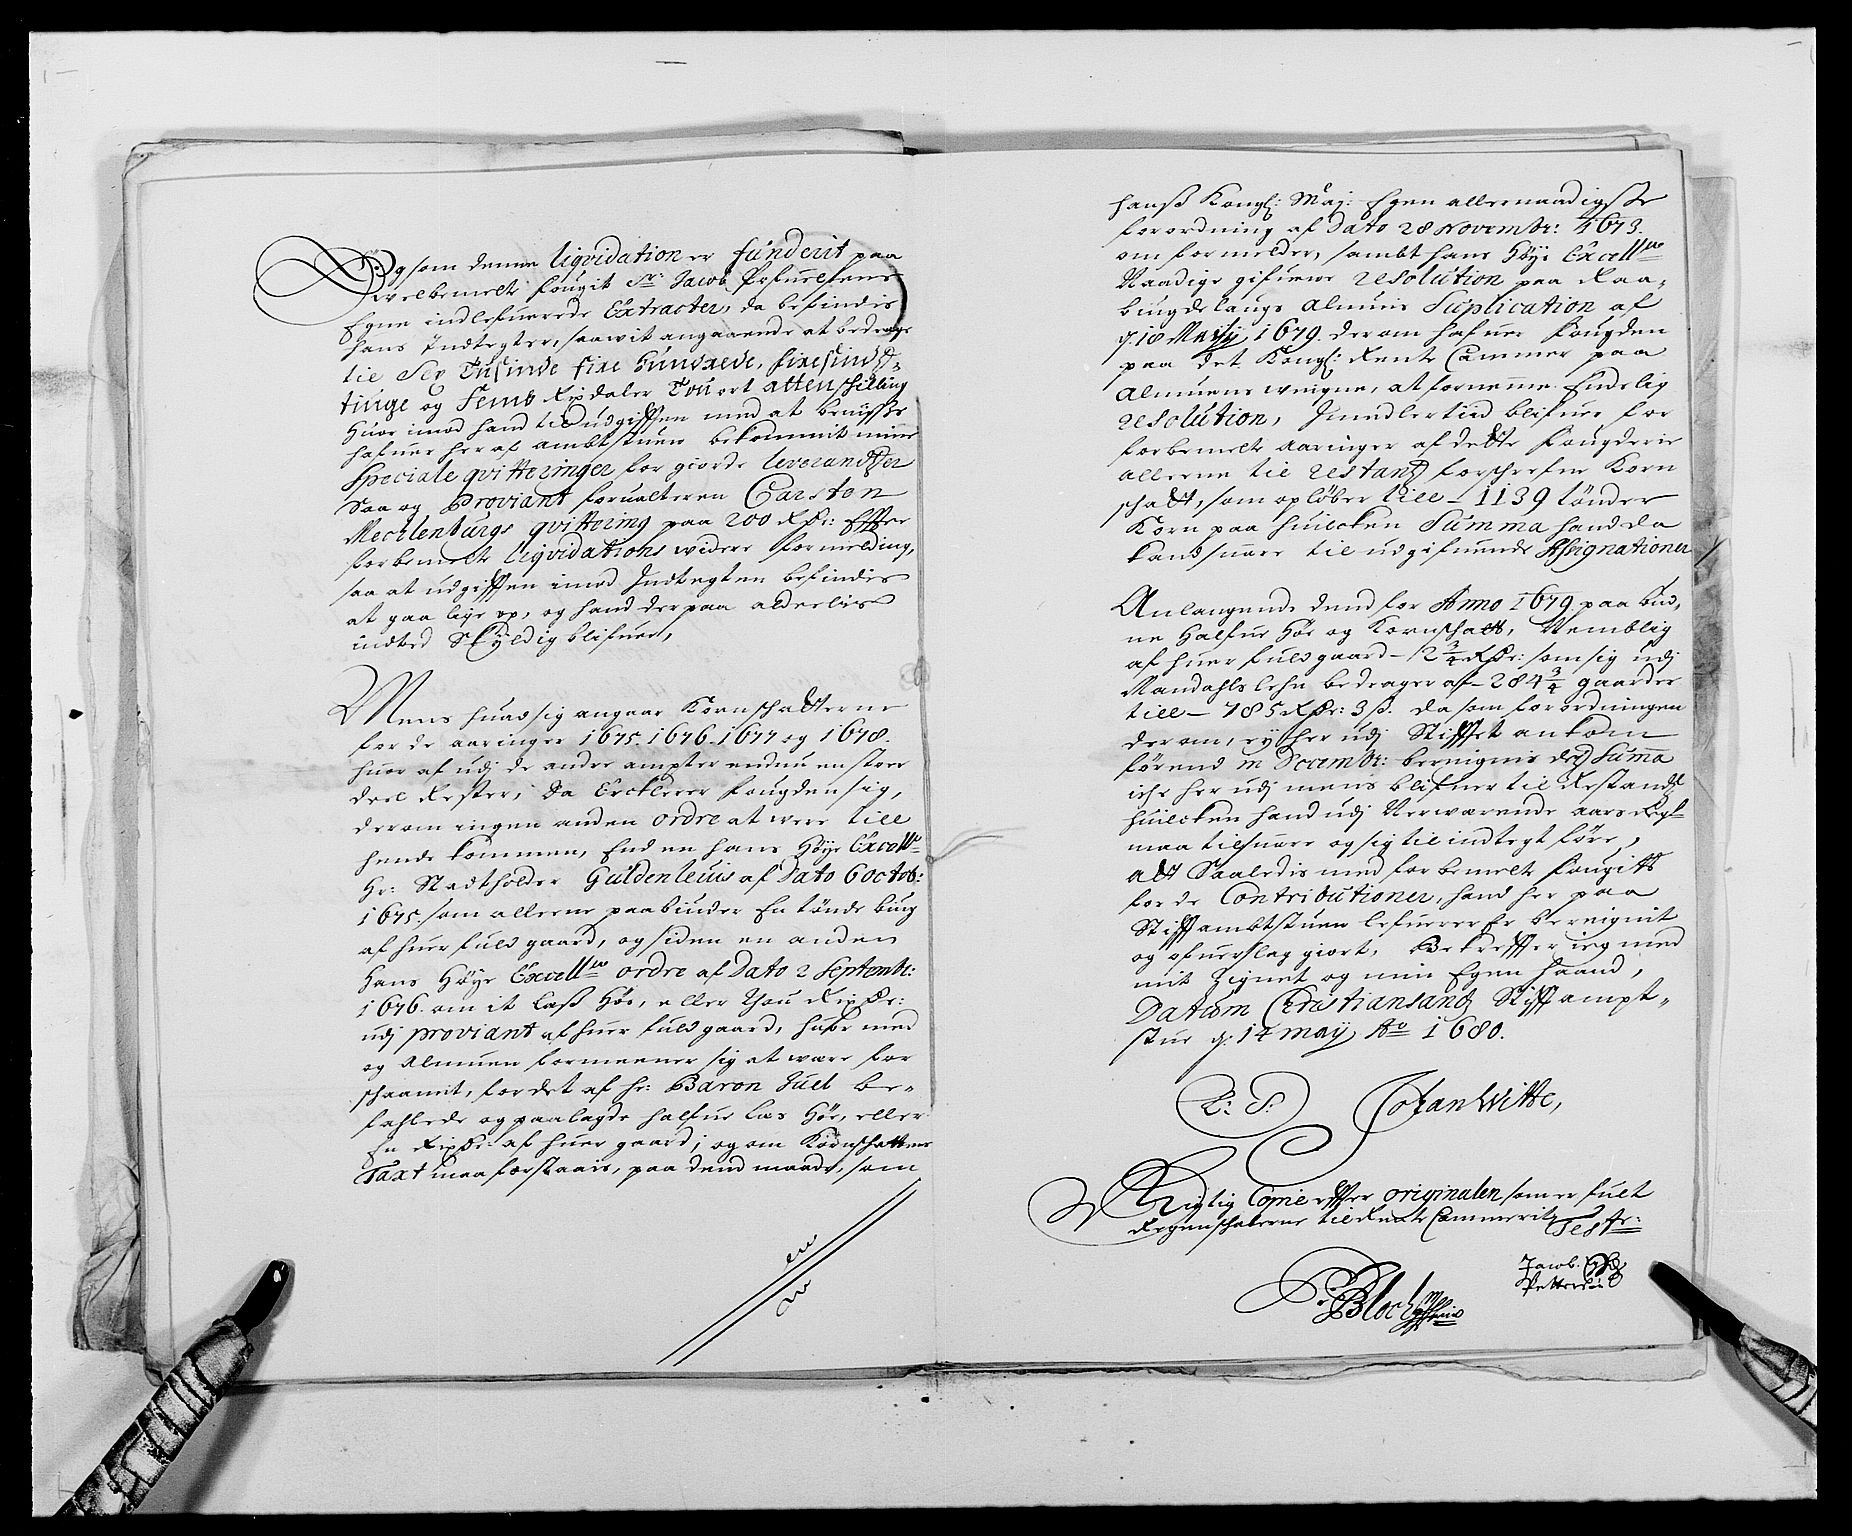 Og som denne liqvidation er funderit paa
welbemelt fougit Sr: Jacob
Egne indlefuerede Extracter, da befindis
hans Indtegter, saawit angaaende at bedrage
til Sex Tusinde fire Hundrede, firesinds-
tiuge og Femb Rixdaler Tou ort atten schilling
Huor imod hand til udgifften med at beuisse
hafuer her af ambtstuen bekommit mine
Speciale qvitteringer for giorde leverandtzer
Saa og Proviant foruallteren Carsten
Mechlenburgs qvittering paa 200 Rdr: Effter
forbemelt liqvidations widere formelding,
saa at udgifften imod Indtegten befindes
at gaa lige op, og hand der paa alderlis
indted Skyldig blifuer,
Mens huad sig angaar Kornschatterne
for de aaringer 1675. 1676. 1677 og 1678.
huor af udj de andre ampter endnu en stoer
deel Rester, Da Erklerer fougden sig,
derom ingen anden ordre at were till
hende kommen, End en hans Höye Excelle
Hr: Stadtholder Güldenleuis af Dato 6 octob:
1675. som allerne paabiuder En tönde biug
af huer fuld gaard, og siden en anden
Hans Höye Excellce ordre af Dato 2 Septembr:
1676. om it lass Höe, eller Thou Rixdr:
udj proviant af huer fuld gaard, huor med
og Almuen formeener sig at were for
schaanit, for det af Hr: Baron Juel be-
fahlede og paalagde halfue las Höe, eller
En Rixdr: af huer gaard; og om Kornschattens
Taxt maa forstaais, paa dend maade, som
hanss Kongl: Maj: Egen allernaadigste
forordning af Dato 28 Novembr: 1673.
om formelder, sambt hans Höye Excellce
Naadige gifuene resolution paa Raa-
biugdelaugs Almuis Suplication af
d. 18 Maij 1679. derom hafuer fougden
paa det Kongl: Rente Cammer paa
Almuens weigne, at fornemme Endelig
resolution, Imidlertid blifuer for
forbemelt aaringer af dette fougderie
allerne til restantz forschrefne Korn
schatt, som opløber till - 1139 tönder
Korn paa huilcken Summa hand da
kand suare til udgifuende Assignationer
Anlangende dend for Anno 1679 paa bud-
ne halfue Höe og Kornschatt, Nemblig
af huer fuld gaard - 2 3/4 Rdr: som sig udj
Mandahls lehn bedrager af - 284 3/4 gaarder
till - 785 Rdr: 3 s. da som forordningen
derom, ey her udj Stifftet ankom
förend in Decembr: beroignis ded Suma
iche her udj mens blifuer til Restandtz
huilcken hand udj Nerwærende aars Regl
maa tilsuare og sig til indtegt före,
Alt Saaledis med forbemelt fougitt
for de Contributioner, hand her paa
Stifftambtstuen lefuerer Er bereignit
og ofuerslag giort, Bekreffter ieg med
mit Zignet og min Egen Haand,
Datum Christiansand Stifftampt-
stue d. 14 may Ao 1680.
L: S: Johan Witte,
Rigtig Copie effter originalen som er fult
Regenschaberne til Rente Cammerit Testr:
Jacob
Pettersen
P Bloch